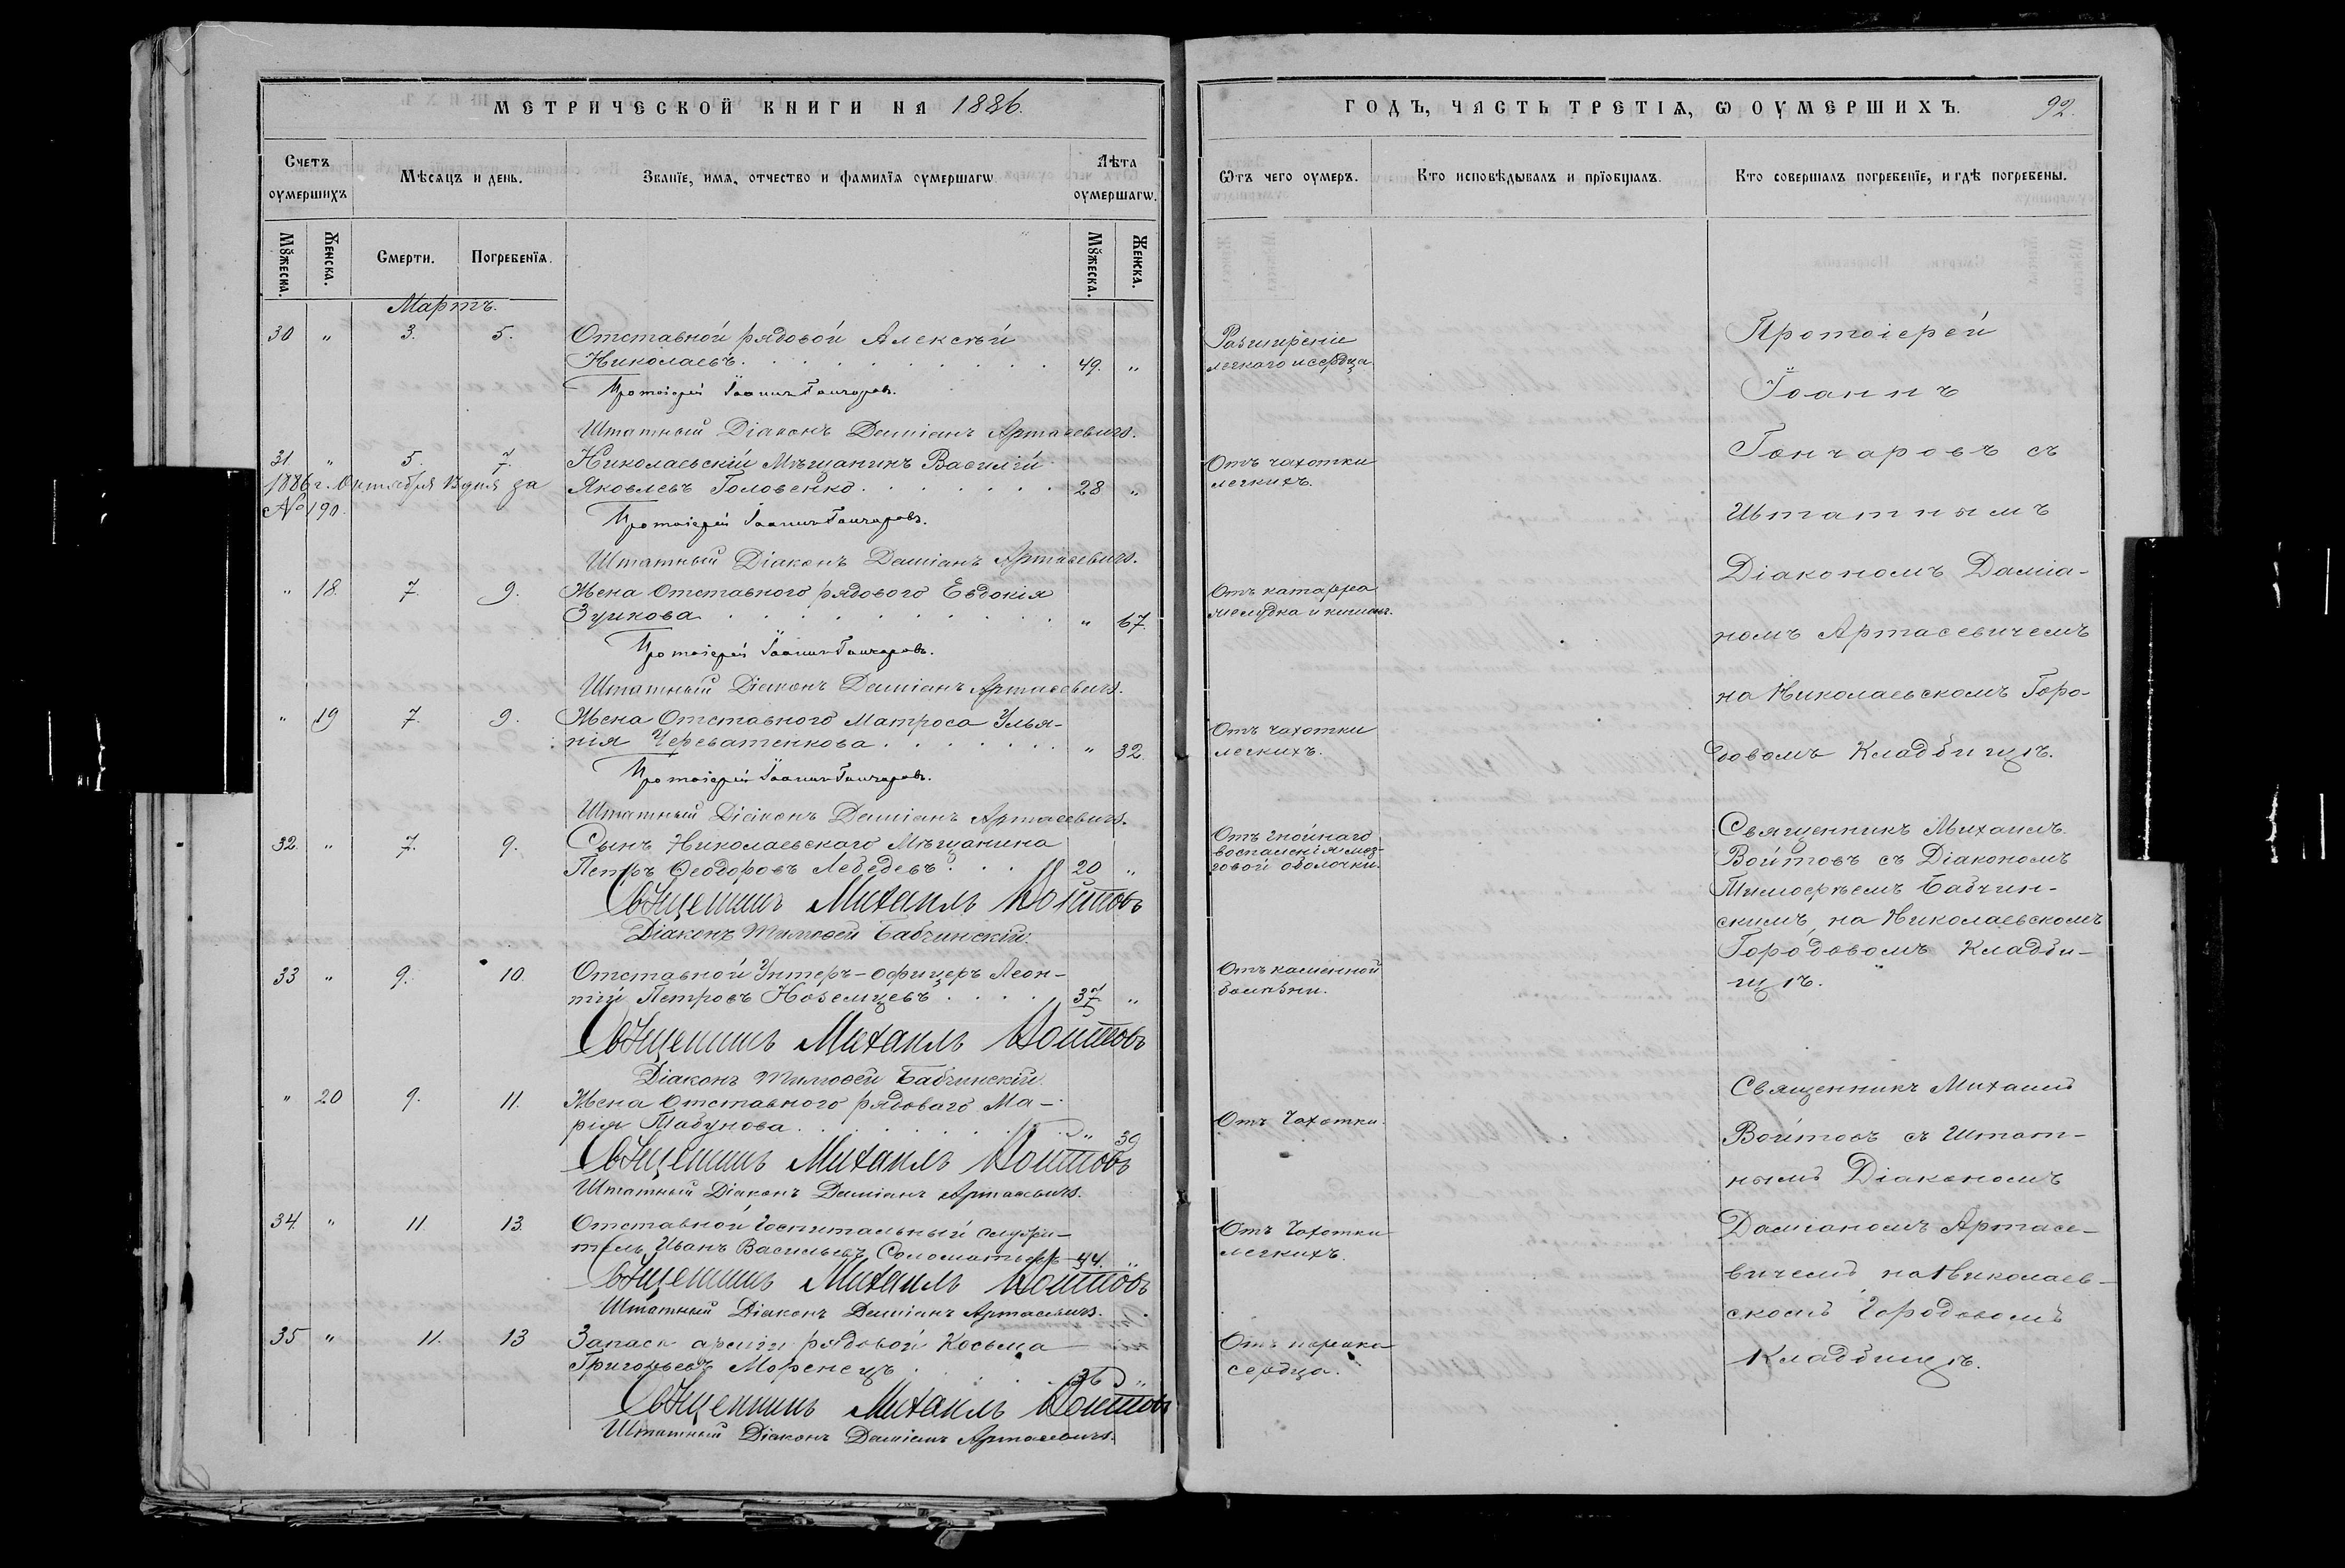 МЕТРИЧЕСКОЙ КНИГИ НА 1886.
Счетъ оумершихъ
Мѣсяцъ и день.
Званїе, имя, отчество и фамилїя оумершагѡ
Лѣта оумершагѡ.
Мꙋжеска.
Женска.
Смерти.
Погребенїя.
Мꙋжеска.
Женска.
Мартъ.
30 " 3. 5. Отставной рядовой Алексѣй
Николаевъ. 49. "
Протоіерей Іоаннъ Гончаровъ.
Штатный Діаконъ Даміанъ Артасевичъ.
31. " 5. 7. Николаевскій Мѣщанинъ Василій
1886 г. Октября 13 дня за Яковлевъ Головенко 28 "
№ 190.
Протоіерей Іоаннъ Гончаровъ.
Штатный Діаконъ Даміанъ Артасевичъ.
" 18. 7. 9. Жена Отставного рядового Евдокія
Зуикова " 67.
Протоіерей Іоаннъ Гончаровъ.
Штатный Діаконъ Даміанъ Артасевичъ.
" 19 7. 9. Жена Отставного Матроса Улья-
нія Череватенкова. " 32.
Протоіерей Іоаннъ Гончаровъ.
Штатный Діаконъ Даміанъ Артасевичъ.
32. " 7. 9. Сынъ Николаевскаго Мѣщанина
Петръ Ѳеодоровъ Лебедевъ. 20 "
Священникъ Михаилъ Войтовъ
Діаконъ Тимоѳей Бабчинскій.
33 " 9. 10. Отставной Унтеръ-Офицеръ Леон-
тій Петровъ Новемцевъ 37 "
Священникъ Михаилъ Войтовъ
Діаконъ Тимоѳей Бабчинскій.
" 20 9. 11. Жена Отставного рядоваго Ма-
рія Табунова. " 39
Священникъ Михаилъ Войтовъ
Штатный Діаконъ Даміанъ Артасевичъ.
34. " 11. 13. Отставной Госпитальный служи-
тель Иванъ Васильевъ 44. "
Священникъ Михаилъ Войтовъ
Штатный Діаконъ Даміанъ Артасевичъ.
35 " 11. 13 Запасн арміи рядовой Косьма
Григорьевъ Моренецъ 36 "
Священникъ Михаилъ Войтовъ
Штатный Діаконъ Даміанъ Артасевичъ.
ГОДЪ, ЧАСТЬ ТРЕТЇЯ, Ѡ ОУМЕРШИХЪ. 92.
Ѿъ чего оумеръ.
Кто исповѣдывалъ и прїобщалъ.
Кто совершалъ погребенїе, и гдѣ погребены.
Разширеніе
легкаго и сердца
Отъ чахотки
легкихъ.
Отъ катарра
желудка и кишекъ.
Отъ чахотки
легкихъ.
Отъ гнойнаго
воспаленія моз-
говой оболочки.
Отъ каменной
болѣзни.
Отъ Чахотки.
Отъ Чахотки
легкихъ.
Отъ порока
сердца.
Протоіерей
Іоаннъ
Гончаровъ съ
Штатнымъ
Діакономъ Даміа-
номъ Артасевичемъ
на Николаевскомъ Горо-
довомъ Кладбищѣ.
Священникъ Михаилъ
Войтовъ съ Діакономъ
Тимоѳеемъ Бабчин-
скимъ, на Николаевскомъ
Городовомъ Кладби-
щѣ.
Священникъ Михаилъ
Войтовъ съ Штат-
нымъ Діакономъ
Даміаномъ Артасе-
вичемъ на Николаев-
скомъ Городовомъ
Кладбищѣ.